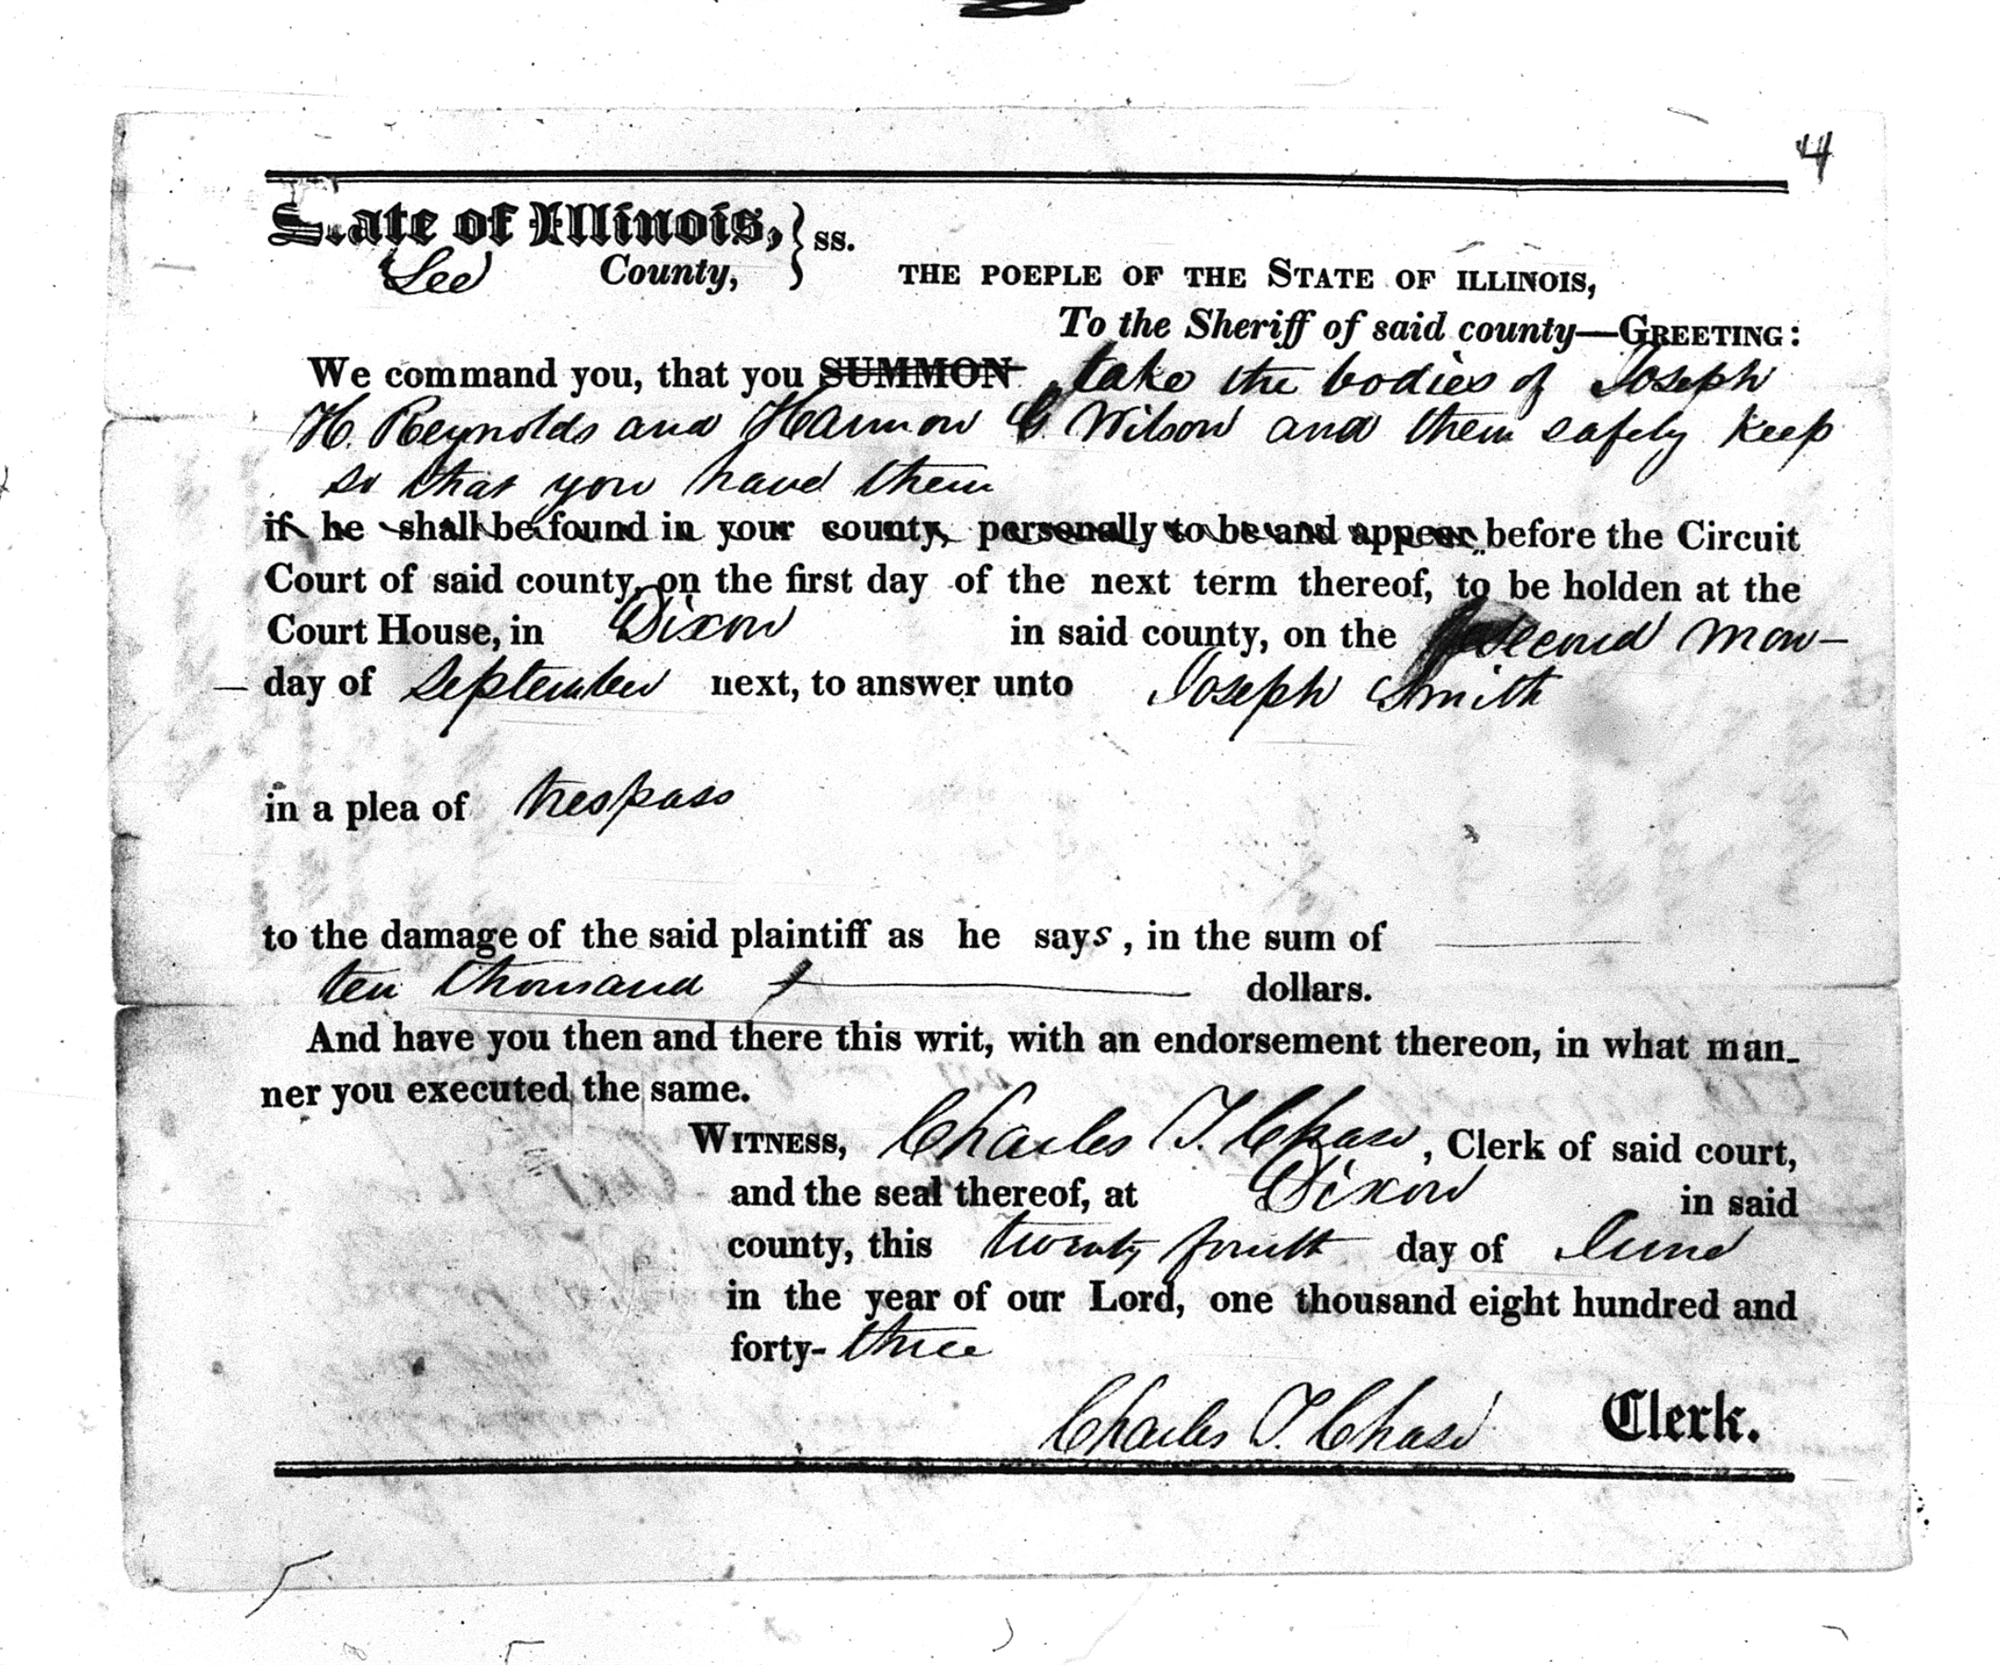 44
State of Illinois, } ss.
Lee County,
THE POEPLE OF THE STATE OF ILLINOIS,
To the Sheriff of said county—GREETING:
We command you, that you SUMMON take the bodies of Joseph
H. Reynolds and Harmon G. Wilson and them safely keep
so that you have them
if he shall be found in your county, personally to be and appear before the Circuit
Court of said county, on the first day of the next term thereof, to be holden at the
Court House, in Dixon in said county, on the second Mon-
-day of September next, to answer unto Joseph Smith
in a plea of trespass
to the damage of the said plaintiff as he says, in the sum of
ten thousand dollars.
And have you then and there this writ, with an endorsement thereon, in what man-
ner you executed the same.
WITNESS, Charles T. Chase, Clerk of said court,
and the seal thereof, at Dixon in said
county, this twenty fourth day of June
in the year of our Lord, one thousand eight hundred and
forty-three
Charles T. Chase Clerk.